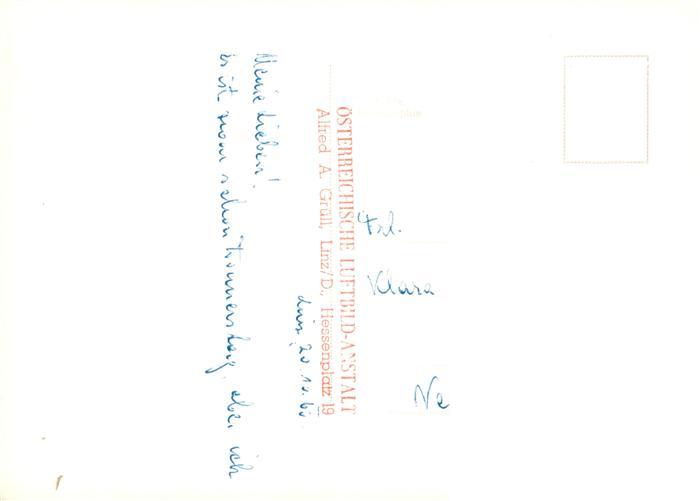 ÖSTERREICHISCHE LUFTBILD-ANSTALT
Alfred A. Grüll, Linz/D., Hessenplatz 19
Linz, 20.10.60.
Meine Lieben!
Es ist zwar schon Donnerstag, aber ich
Frl.
Klara
Ne